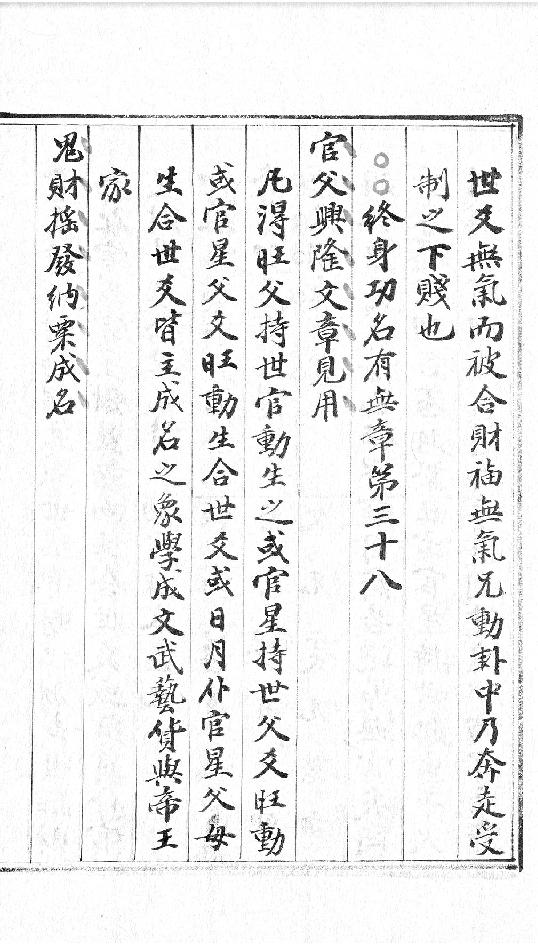 世爻無氣而被合財福無氣兄動卦中乃奔走受
制之下賤也
○○終身功名有無章第三十八
官父興隆文章見用
凡得旺父持世官動生之或官星持世父爻旺動
或官星父爻旺動生合世爻或日月作官星父母
生合世爻皆主成名之象學成文武藝貨與帝王
家
鬼財搖發納粟成名